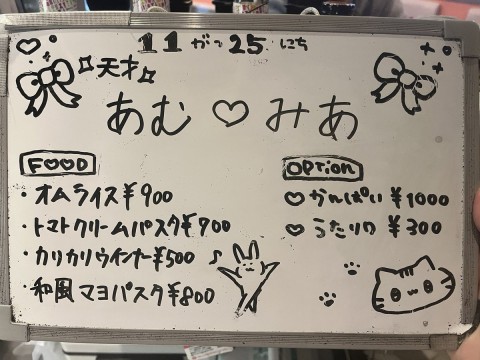 11がつ25にち
天才
あむ♡みあ
FOOD
・オムライス¥900
・トマトクリームパスタ¥900
・カリカリウインナー¥500
・和風マヨパスタ¥800
Option
♡かんぱい ¥1000
♡うたリク ¥300